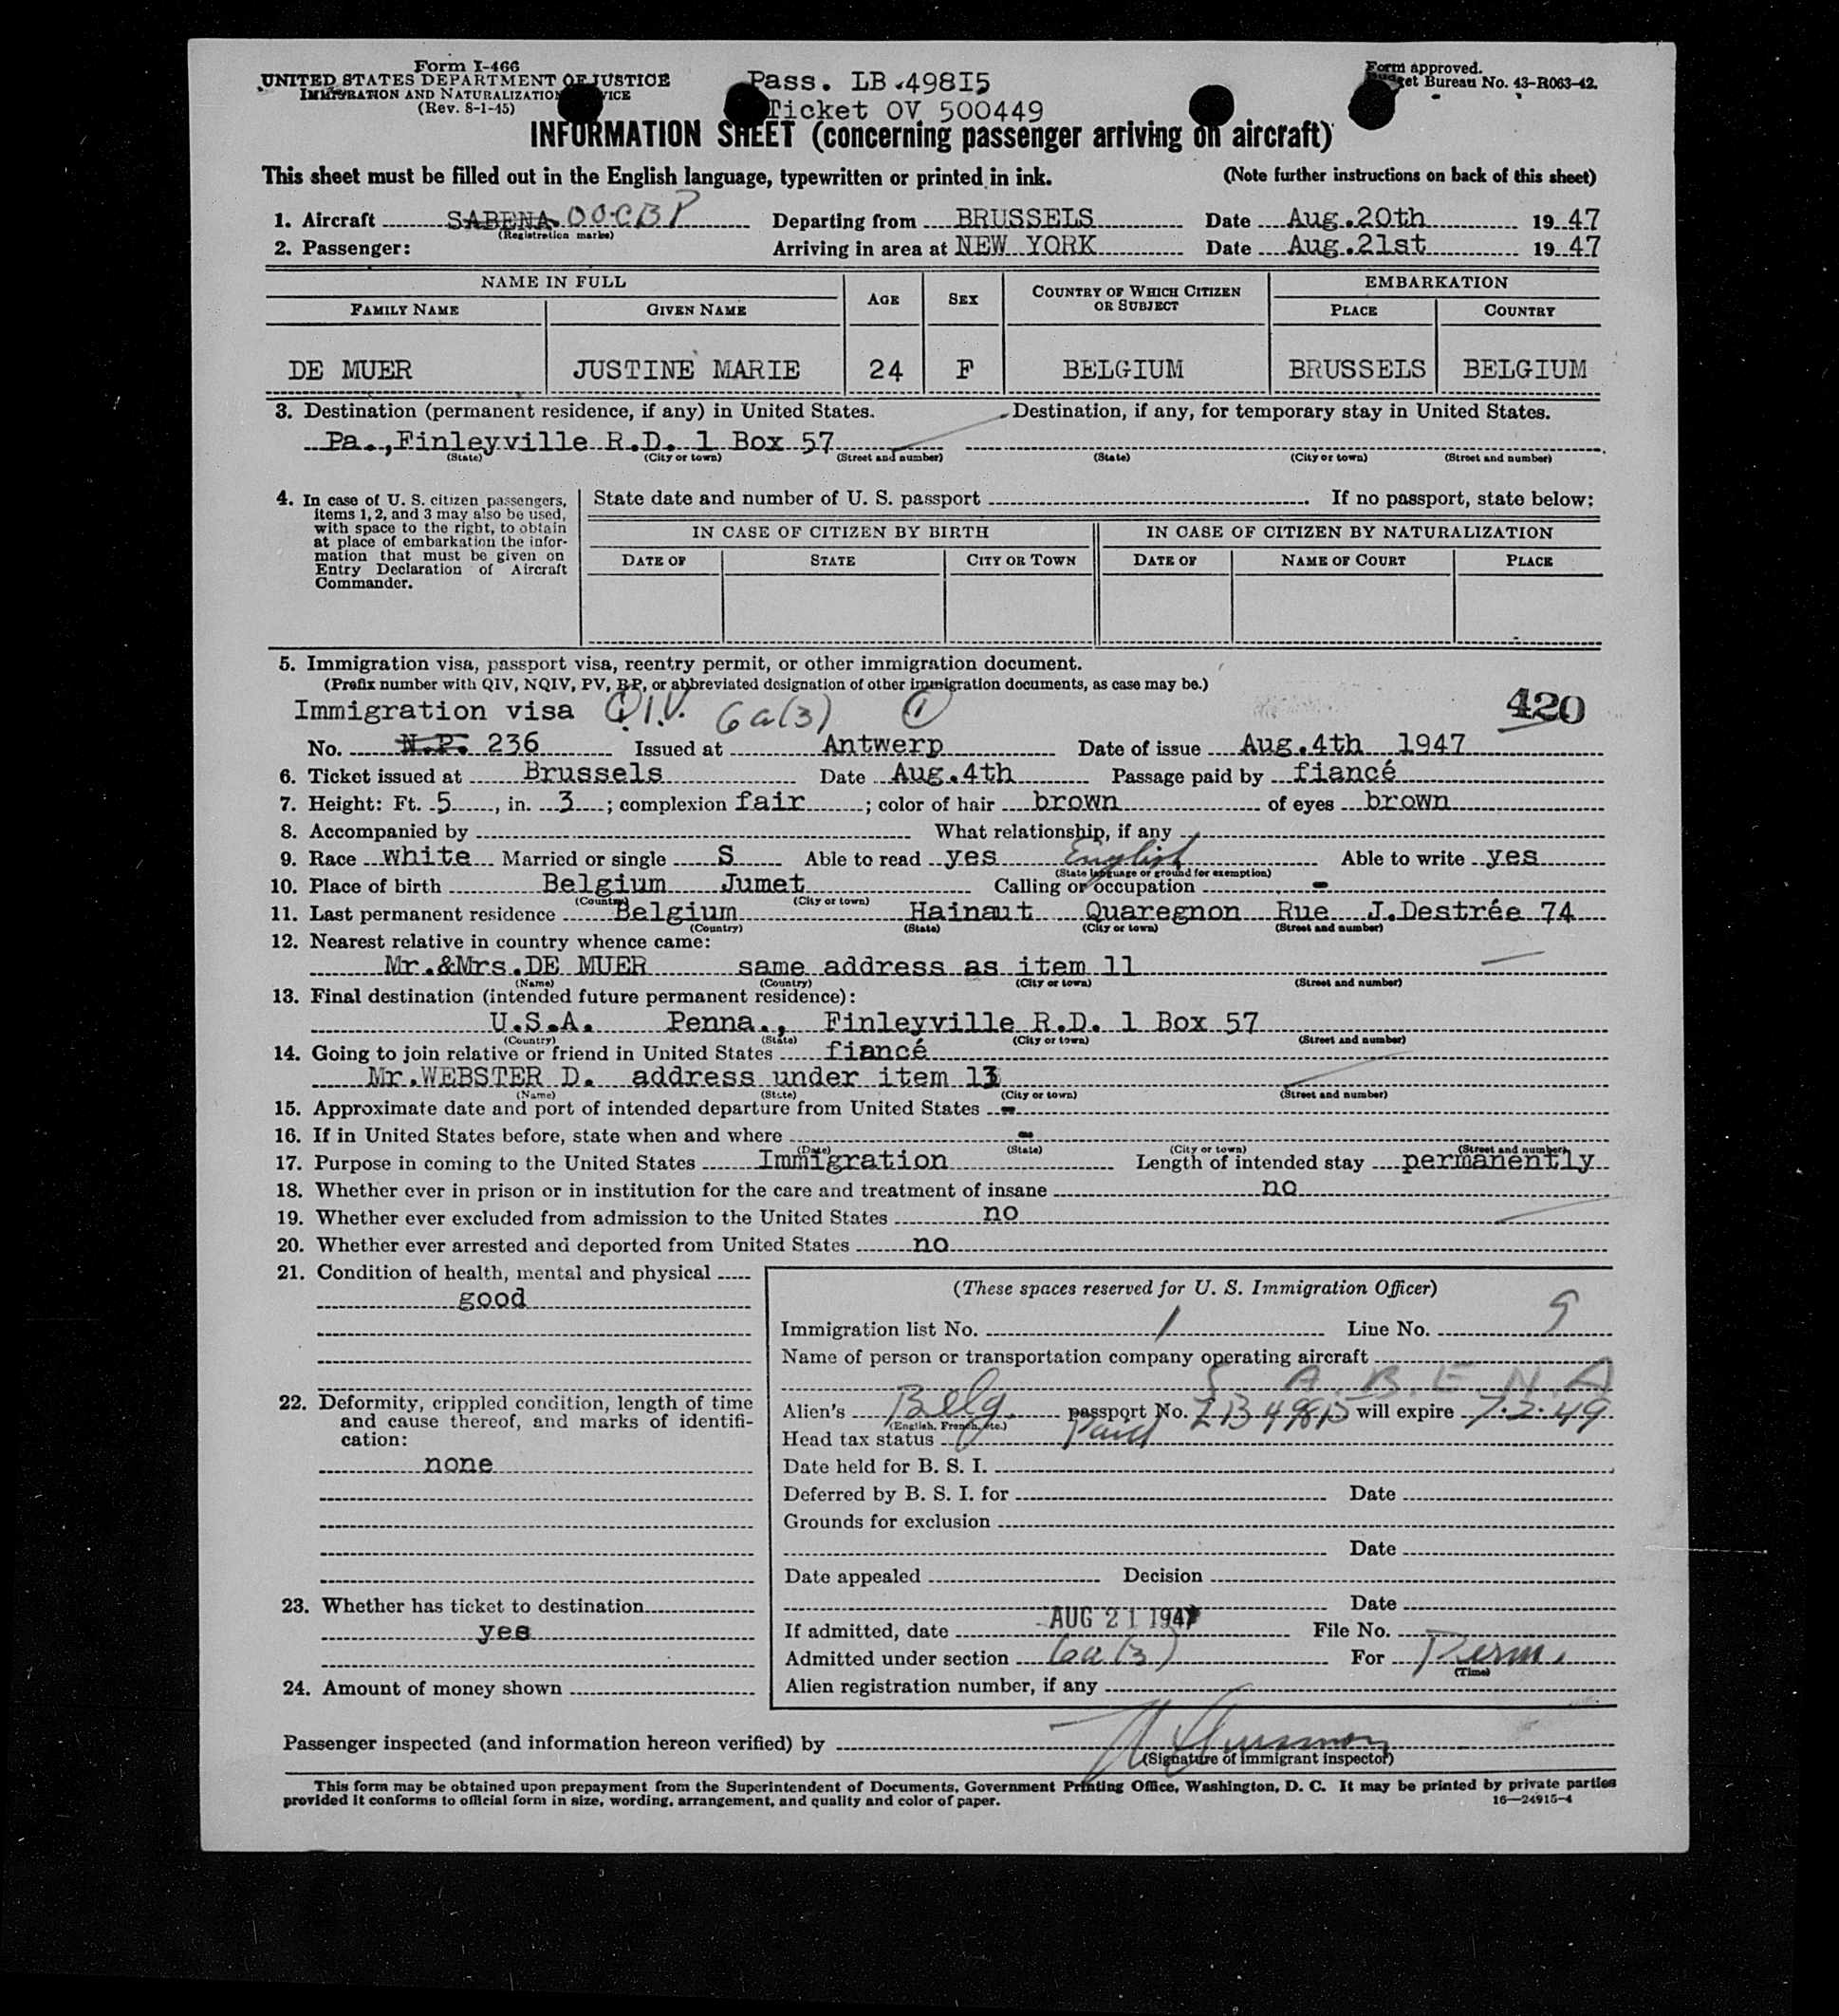 Form I-466
UNITED STATES DEPARTMENT OF JUSTICE
IMMIGRATION AND NATURALIZATION
(Rev. 8-1-45)
Pass. LB.49815
Ticket OV 500449
Form approved.
Bureau No. 43-R063-42.
INFORMATION SHEET (concerning passenger arriving on aircraft)
This sheet must be filled out in the English language, typewritten or printed in ink. (Note further instructions on back of this sheet)
1. Aircraft SABENA OO-CBP Departing from BRUSSELS Date Aug.20th 19 47
(Registration marks)
2. Passenger: Arriving in area at NEW YORK Date Aug.21st 19 47
NAME IN FULL AGE SEX COUNTRY OF WHICH CITIZEN OR SUBJECT EMBARKATION
FAMILY NAME GIVEN NAME PLACE COUNTRY
DE MUER JUSTINE MARIE 24 F BELGIUM BRUSSELS BELGIUM
3. Destination (permanent residence, if any) in United States. Destination, if any, for temporary stay in United States.
Pa.,Finleyville R.D. 1 Box 57
(State) (City or town) (Street and number) (State) (City or town) (Street and number)
4. In case of U. S. citizen passengers,
items 1, 2, and 3 may also be used,
with space to the right, to obtain
at place of embarkation the infor-
mation that must be given on
Entry Declaration of Aircraft
Commander.
State date and number of U. S. passport If no passport, state below:
IN CASE OF CITIZEN BY BIRTH IN CASE OF CITIZEN BY NATURALIZATION
DATE OF STATE CITY OR TOWN DATE OF NAME OF COURT PLACE
5. Immigration visa, passport visa, reentry permit, or other immigration document.
(Prefix number with QIV, NQIV, PV, RP, or abbreviated designation of other immigration documents, as case may be.)
Immigration visa Q.I.V. 6a(3) 1 420
No. N.P. 236 Issued at Antwerp Date of issue Aug.4th 1947
6. Ticket issued at Brussels Date Aug.4th Passage paid by fiancé
7. Height: Ft. 5, in. 3; complexion fair; color of hair brown of eyes brown
8. Accompanied by What relationship, if any
9. Race white Married or single S Able to read yes English Able to write yes
(State language or ground for exemption)
10. Place of birth Belgium Jumet Calling or occupation -
(Country) (City or town)
11. Last permanent residence Belgium Hainaut Quaregnon Rue J.Destrée 74
(Country) (State) (City or town) (Street and number)
12. Nearest relative in country whence came:
Mr.&Mrs.DE MUER same address as item 11
(Name) (Country) (City or town) (Street and number)
13. Final destination (intended future permanent residence):
U.S.A. Penna., Finleyville R.D. 1 Box 57
(Country) (State) (City or town) (Street and number)
14. Going to join relative or friend in United States fiancé
Mr.WEBSTER D. address under item 13
(Name) (State) (City or town) (Street and number)
15. Approximate date and port of intended departure from United States -
16. If in United States before, state when and where -
(Date) (State) (City or town) (Street and number)
17. Purpose in coming to the United States Immigration Length of intended stay permanently
18. Whether ever in prison or in institution for the care and treatment of insane no
19. Whether ever excluded from admission to the United States no
20. Whether ever arrested and deported from United States no
21. Condition of health, mental and physical
good
22. Deformity, crippled condition, length of time
and cause thereof, and marks of identifi-
cation:
none
23. Whether has ticket to destination
yes
24. Amount of money shown
(These spaces reserved for U. S. Immigration Officer)
Immigration list No. 1 Line No. 9
Name of person or transportation company operating aircraft
S.A.B.E.N.A
Alien's Belg. passport No. LB49815 will expire 7-2-49
(English, French, etc.)
Head tax status Paid
Date held for B. S. I.
Deferred by B. S. I. for Date
Grounds for exclusion
Date
Date appealed Decision
Date
If admitted, date AUG 21 1947 File No.
Admitted under section 6a(3) For Perm.
(Time)
Alien registration number, if any
Passenger inspected (and information hereon verified) by
(Signature of immigrant inspector)
This form may be obtained upon prepayment from the Superintendent of Documents, Government Printing Office, Washington, D. C. It may be printed by private parties
provided it conforms to official form in size, wording, arrangement, and quality and color of paper. 16—24915-4